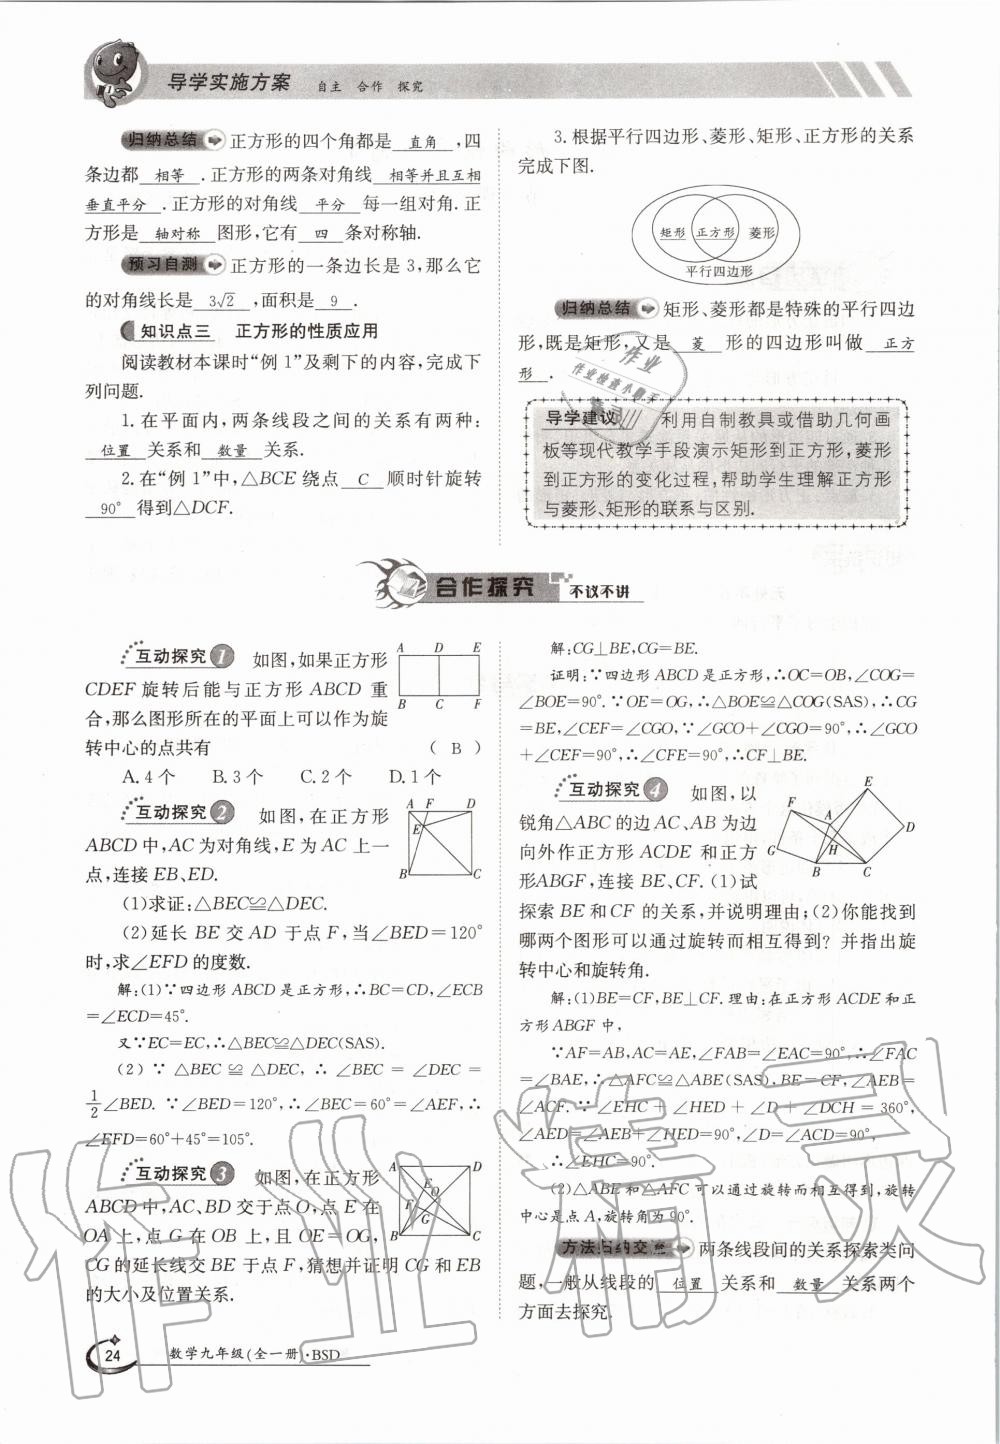 导学实施方案 自主 合作 探究
归纳总结 正方形的四个角都是 直角 ,四
条边都 相等 .正方形的两条对角线 相等并且互相
垂直平分 .正方形的对角线 平分 每一组对角.正
方形是 轴对称 图形,它有 四 条对称轴.
预习自测 正方形的一条边长是3,那么它
的对角线长是 3√2 ,面积是 9 .
知识点三 正方形的性质应用
阅读教材本课时“例1”及剩下的内容,完成下
列问题.
1.在平面内,两条线段之间的关系有两种:
位置 关系和 数量 关系.
2.在“例1”中,△BCE绕点 C 顺时针旋转
90° 得到△DCF.
3.根据平行四边形、菱形、矩形、正方形的关系
完成下图.
矩形 正方形 菱形
平行四边形
归纳总结 矩形、菱形都是特殊的平行四边
形,既是矩形,又是 菱 形的四边形叫做 正方
形 .
作业
作业检查小助手
导学建议 利用自制教具或借助几何画
板等现代教学手段演示矩形到正方形,菱形
到正方形的变化过程,帮助学生理解正方形
与菱形、矩形的联系与区别.
合作探究 不议不讲
互动探究1 如图,如果正方形
CDEF旋转后能与正方形ABCD重
合,那么图形所在的平面上可以作为旋
转中心的点共有 ( B )
A.4个 B.3个 C.2个 D.1个
A D E
B C F
互动探究2 如图,在正方形
ABCD中,AC为对角线,E为AC上一
点,连接EB、ED.
A F D
E
B C
(1)求证:△BEC≌△DEC.
(2)延长BE交AD于点F,当∠BED=120°
时,求∠EFD的度数.
解:(1)∵四边形ABCD是正方形,∴BC=CD,∠ECB
=∠ECD=45°.
又∵EC=EC,∴△BEC≌△DEC(SAS).
(2)∵△BEC≌△DEC,∴∠BEC=∠DEC=
1/2∠BED.∵∠BED=120°,∴∠BEC=60°=∠AEF,∴
∠EFD=60°+45°=105°.
互动探究3 如图,在正方形
ABCD中,AC、BD交于点O,点E在
OA上,点G在OB上,且OE=OG,
CG的延长线交BE于点F,猜想并证明CG和EB
的大小及位置关系.
A D
E O
F G
B C
解:CG⊥BE,CG=BE.
证明:∵四边形ABCD是正方形,∴OC=OB,∠COG=
∠BOE=90°.∵OE=OG,∴△BOE≌△COG(SAS),∴CG
=BE,∠CEF=∠CGO,∵∠GCO+∠CGO=90°,∴∠GCO
+∠CEF=90°,∴∠CFE=90°,∴CF⊥BE.
互动探究4 如图,以
锐角△ABC的边AC、AB为边
向外作正方形ACDE和正方
形ABGF,连接BE、CF.(1)试
探索BE和CF的关系,并说明理由;(2)你能找到
哪两个图形可以通过旋转而相互得到?并指出旋
转中心和旋转角.
E
F A D
G H
B C
解:(1)BE=CF,BE⊥CF.理由:在正方形ACDE和正
方形ABGF中,
∵AF=AB,AC=AE,∠FAB=∠EAC=90°,∴∠FAC
=∠BAE,∴△AFC≌△ABE(SAS),BE=CF,∠AEB=
∠ACF.∵∠EHC+∠HED+∠D+∠DCH=360°,
∠AED=∠AEB+∠HED=90°,∠D=∠ACD=90°,
∴∠EHC=90°.
(2)△ABE和△AFC可以通过旋转而相互得到,旋转
中心是点A,旋转角为90°.
方法归纳交流 两条线段间的关系探索类问
题,一般从线段的 位置 关系和 数量 关系两个
方面去探究.
24 数学九年级(全一册)·BSD
作业精灵